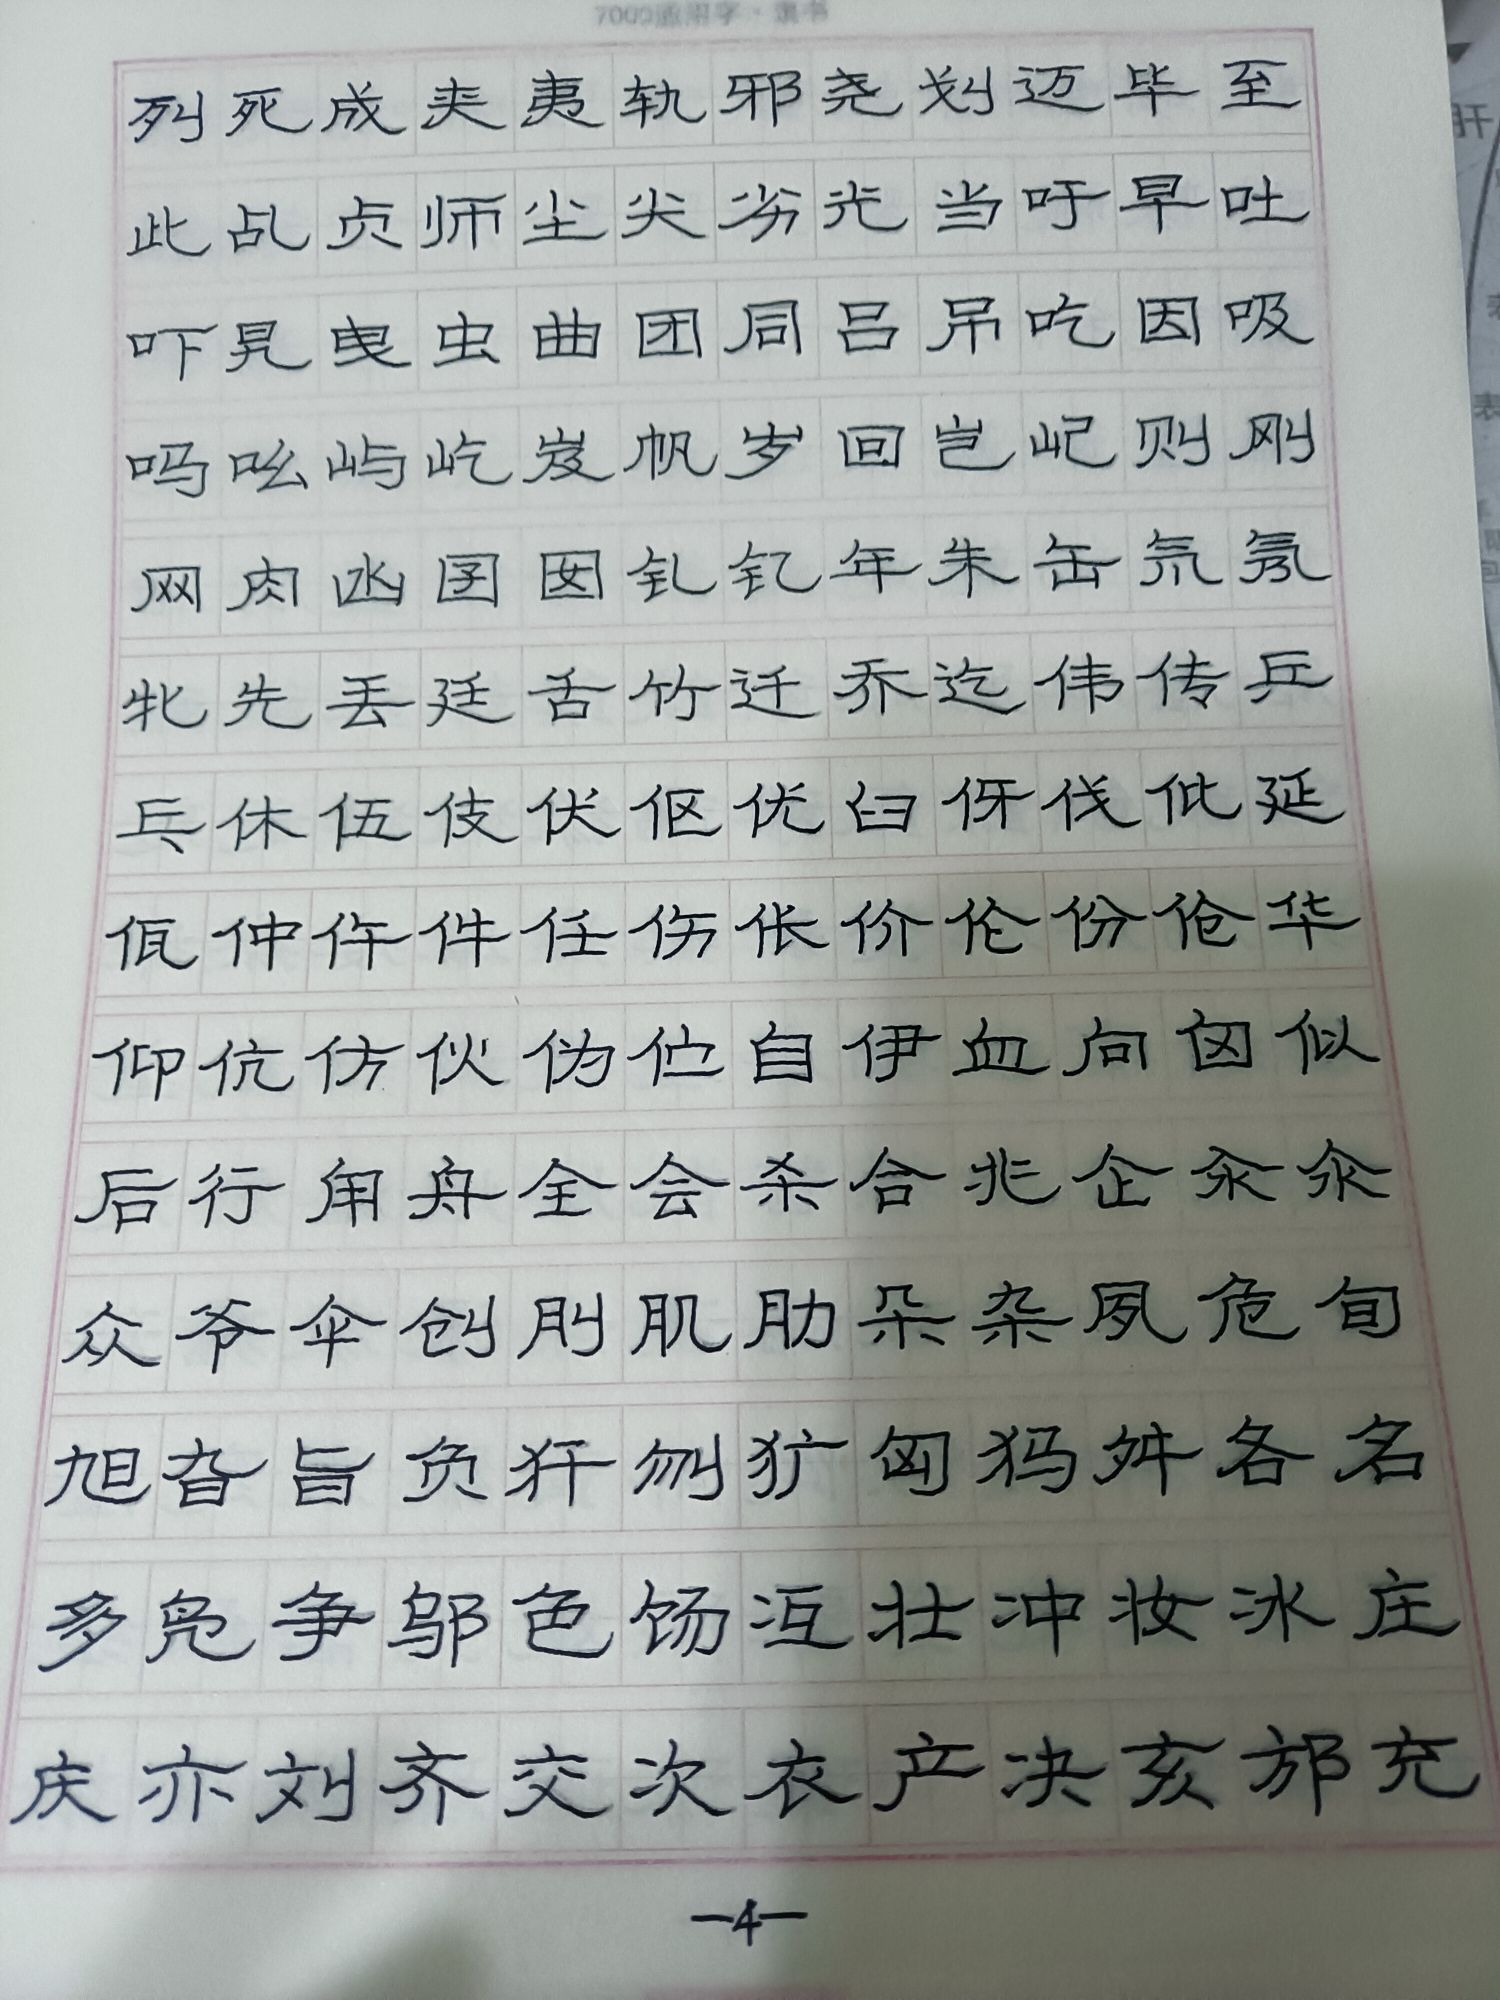 7000通用字·隶书
列死成夹夷轨邪尧划迈毕至
此乩贞师尘尖劣光当吁早吐
吓晃曳虫曲团同吕吊吃因吸
吗吆屿屹岌帆岁回岂屺则刚
网肉凼囝囡钆钇年朱缶氘氖
牝先丢廷舌竹迁乔迄伟传乒
乓休伍伎伏伛优臼伢伐仳延
佤仲仵件任伤伥价伦份伧华
仰伉仿伙伪伫自伊血向囟似
后行甪舟全会杀合兆企汆氽
众爷伞创刖肌肋朵杂夙危旬
旭旮旨负犴刎犷匈犸舛各名
多凫争邬色饧冱壮冲妆冰庄
庆亦刘齐交次衣产决亥邡充
—4—